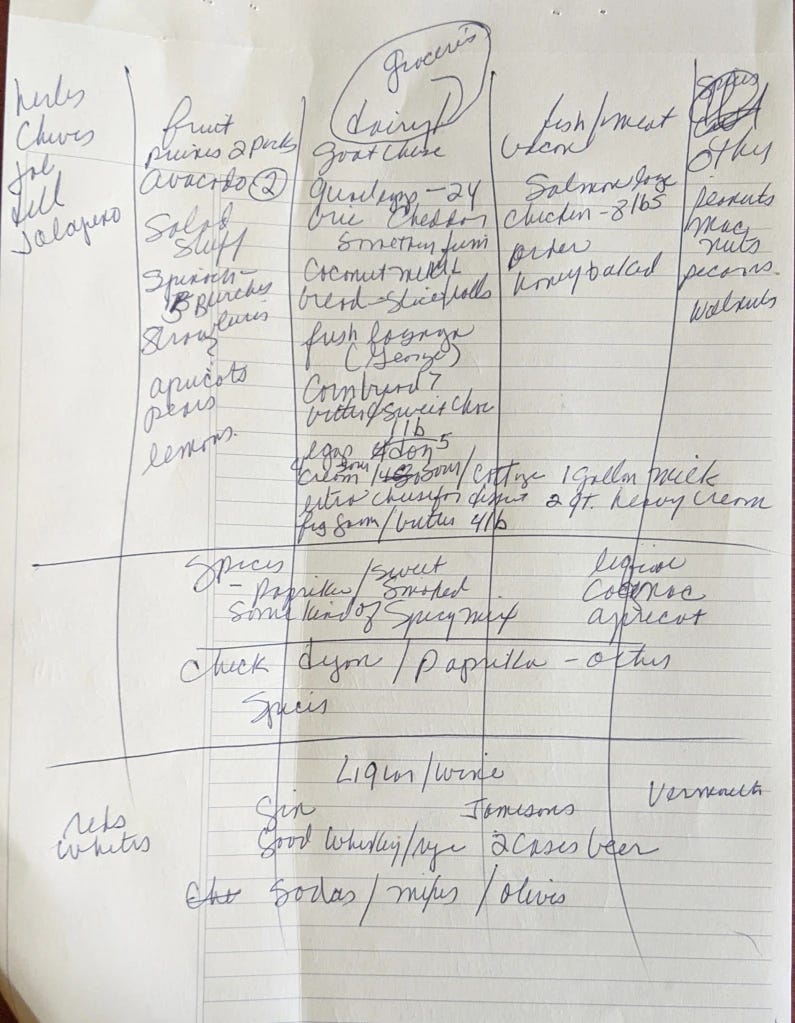 groceries
herbs
Chives
dill
Jalapeno
fruit
prunes 2 packs
avacado 2
Salad
Stuff
Spinach -
Bunches
apricots
pears
lemons.
dairy
goat cheese
24
brie Cheddar
Something fun
Coconut milk
bread - slice/rolls
fresh lasagna
(George)
Cornbread 7
bitter & sweet choc
1 lb
eggs doz 5
cream sour / cottage 1 gallon milk
extra cheese for dessert 2 qt. heavy cream
fig jam / butter 4 lb
fish/meat
bacon
Salmon large
chicken - 8 lbs
order
honeybaked
Spices
other
peanuts
mac
nuts
pecans.
walnuts
Spices
- Paprika / sweet
smoked
Some kind of Spicy mix
Cognac
apricot
Check dijon / paprika - other
Spices
Liquor/wine
reds
whites
Gin
Jamesons
Vermouth
Good Whiskey/rye 2 cases beer
Sodas / mixes / olives